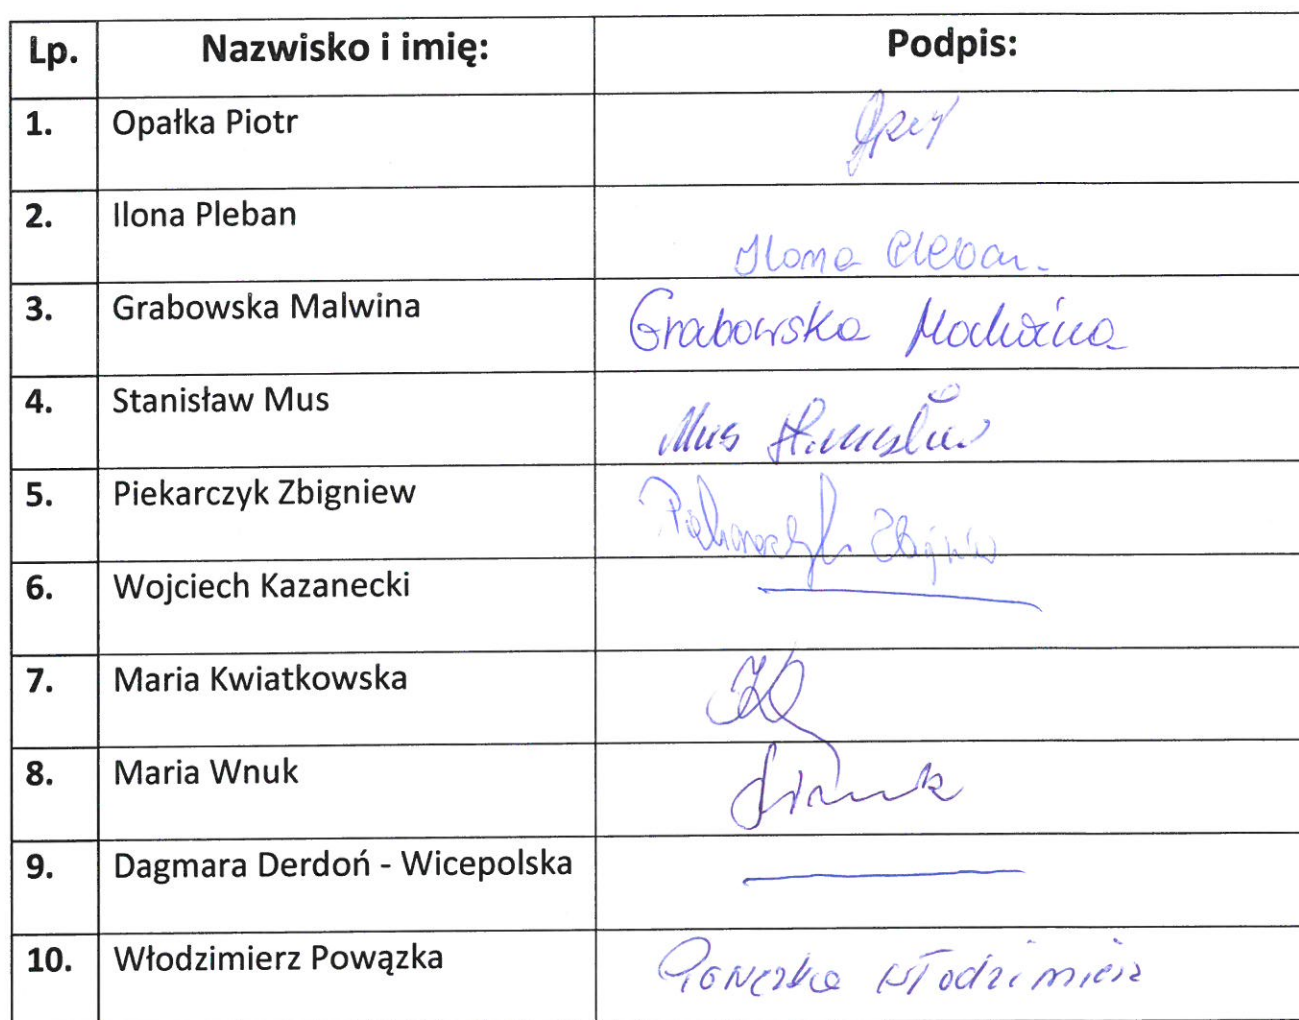 Lp. Nazwisko i imię: Podpis:
1. Opałka Piotr
2. Ilona Pleban Ilona Pleban.
3. Grabowska Malwina Grabowska Malwina
4. Stanisław Mus Mus Stanisław
5. Piekarczyk Zbigniew Piekarczyk Zbigniew
6. Wojciech Kazanecki
7. Maria Kwiatkowska
8. Maria Wnuk Wnuk
9. Dagmara Derdoń - Wicepolska
10. Włodzimierz Powązka Powązka Włodzimierz